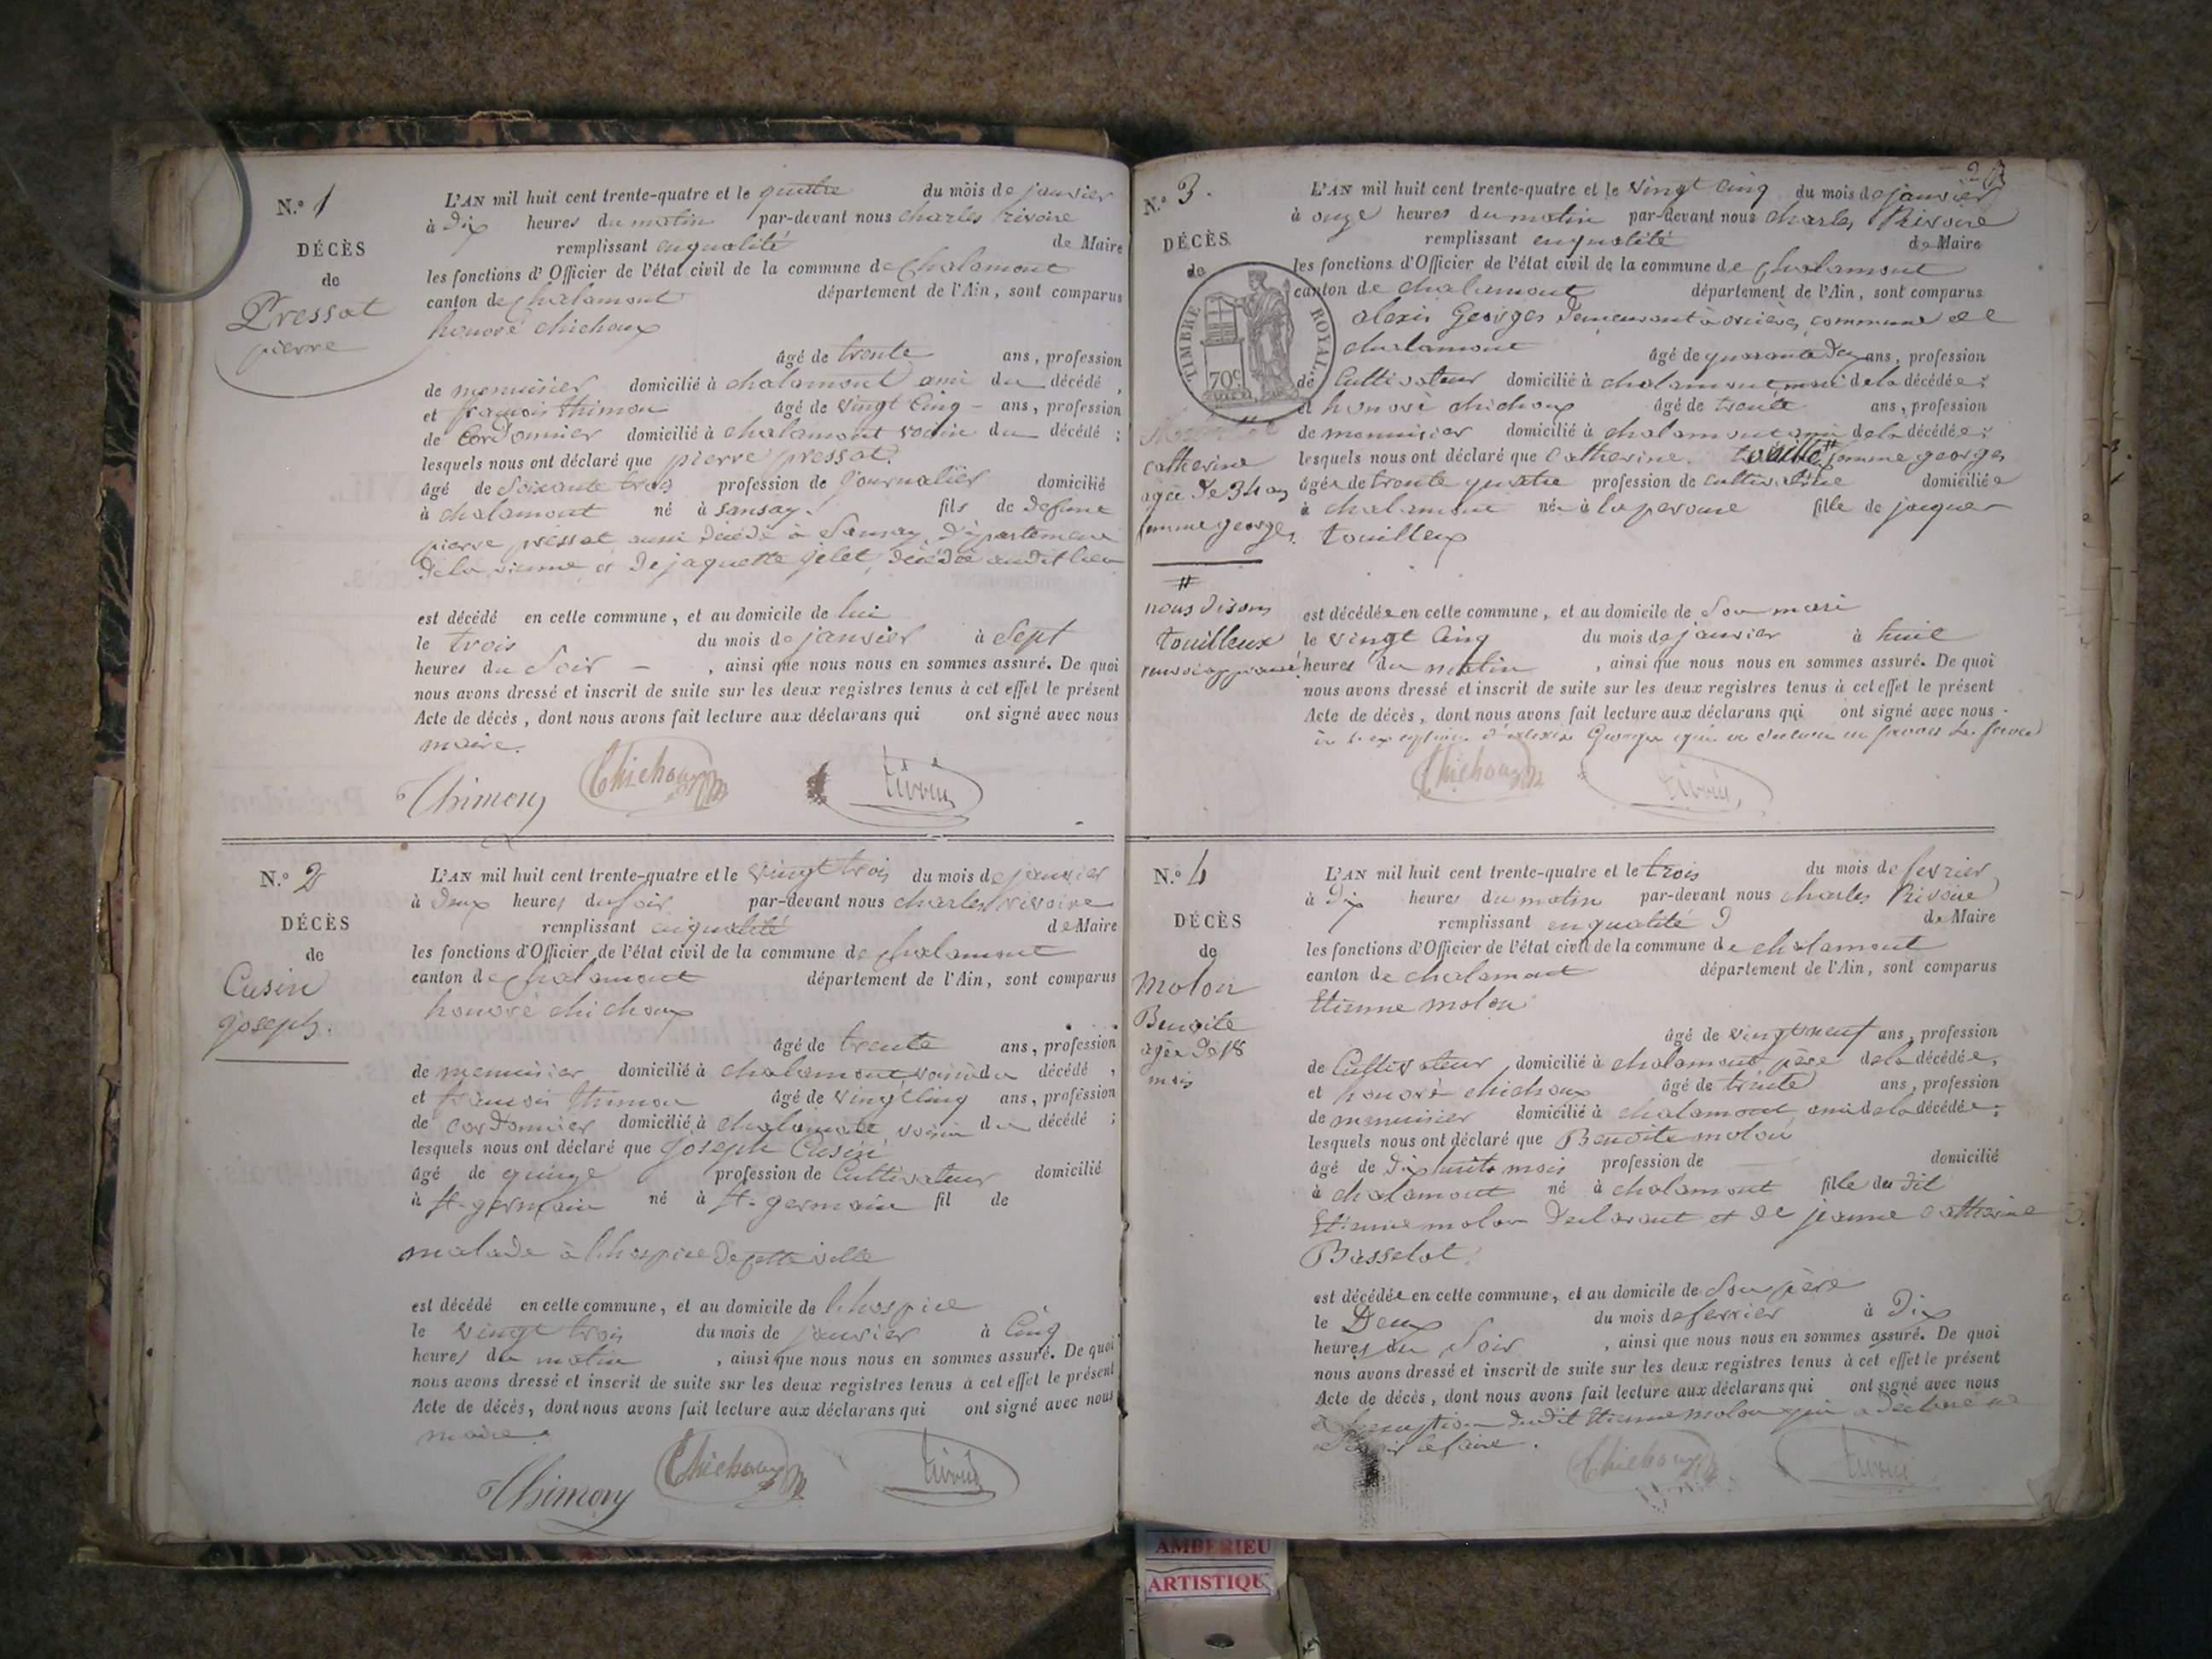 N.º 1
DÉCÈS
de
Pressat
pierre
L'AN mil huit cent trente-quatre et le quatre du mois de janvier
à Dix heures du matin par-devant nous charles rivoire
remplissant en qualité de Maire
les fonctions d'Officier de l'état civil de la commune de chalamont
canton de chalamont département de l'Ain, sont comparus
honoré chichoux
âgé de trente ans, profession
de menuisier domicilié à chalamont ami du décédé,
et françois thimon âgé de vingt cinq - ans, profession
de Cordonnier domicilié à chalamont voisin du décédé ;
lesquels nous ont déclaré que pierre pressat
âgé de soixante trois profession de journalier domicilié
à chalamont né à sansay fils de defunt
pierre pressat aussi décédé à Sansay, département
de la vienne et de jaquette gelet, décédée audit lieu
est décédé en cette commune, et au domicile de lui
le trois du mois de janvier à Sept
heures du Soir - , ainsi que nous nous en sommes assuré. De quoi
nous avons dressé et inscrit de suite sur les deux registres tenus à cet effet le présent
Acte de décès, dont nous avons fait lecture aux déclarans qui ont signé avec nous
maire.
Thimon Chichoux
N.º 2
DÉCÈS
de
Cusin
joseph.
L'AN mil huit cent trente-quatre et le vingt trois du mois de janvier
à Deux heures du soir par-devant nous charles rivoire
remplissant en qualité de Maire
les fonctions d'Officier de l'état civil de la commune de chalamont
canton de chalamont département de l'Ain, sont comparus
honoré chichoux
âgé de trente ans, profession
de menuisier domicilié à chalamont voisin du décédé,
et françois thimon âgé de vingt cinq ans, profession
de cordonnier domicilié à chalamont voisin du décédé ;
lesquels nous ont déclaré que joseph Cusin
âgé de quinze profession de Cultivateur domicilié
à St. germain né à St. germain fil de
malade à l'hospice de cette ville
est décédé en cette commune, et au domicile de l'hospice
le vingt trois du mois de janvier à Cinq
heures du matin , ainsi que nous nous en sommes assuré. De quoi
nous avons dressé et inscrit de suite sur les deux registres tenus à cet effet le présent
Acte de décès, dont nous avons fait lecture aux déclarans qui ont signé avec nous
maire.
Thimon Chichoux
N.º 3.
DÉCÈS
de
TIMBRE ROYAL
70c
catherine
agée de 34 ans
femme georges
#
nous disons
touilleux
renvoi approuvé
L'AN mil huit cent trente-quatre et le vingt cinq du mois de janvier
à onze heures du matin par-devant nous charles Rivoire
remplissant en qualité de Maire
les fonctions d'Officier de l'état civil de la commune de chalamont
canton de chalamont département de l'Ain, sont comparus
alexis Georges demeurant à commune de
chalamont âgé de quarante ans, profession
de Cultivateur domicilié à chalamont mari de la décédée ;
et honoré chichoux âgé de trente ans, profession
de menuisier domicilié à chalamont ami de la décédée ;
lesquels nous ont déclaré que Catherine # femme georges
âgée de trente quatre profession de cultivatrice domiciliée
à chalamont née à la perouse fille de jacques
touilleux
est décédée en cette commune, et au domicile de Son mari
le vingt cinq du mois de janvier à huit
heures du matin , ainsi que nous nous en sommes assuré. De quoi
nous avons dressé et inscrit de suite sur les deux registres tenus à cet effet le présent
Acte de décès, dont nous avons fait lecture aux déclarans qui ont signé avec nous
à l'exception d'alexis Georges qui a déclaré ne savoir le faire
Chichoux
N.º 4
DÉCÈS
de
Molon
Benoite
agée de 18
mois
L'AN mil huit cent trente-quatre et le trois du mois de fevrier
à Dix heures du matin par-devant nous charles Rivoire
remplissant en qualité de Maire
les fonctions d'Officier de l'état civil de la commune de chalamont
canton de chalamont département de l'Ain, sont comparus
Etienne molon
âgé de vingt neuf ans, profession
de Cultivateur domicilié à chalamont père de la décédée,
et honoré chichoux âgé de trente ans, profession
de menuisier domicilié à chalamont, ami de la décédée ;
lesquels nous ont déclaré que Benoite molon
âgé de Dix huit mois profession de domicilié
à chalamont né à chalamont fille du dit
Etienne molon Declarant et de jeanne catherine
Basselot
est décédée en cette commune, et au domicile de Son père
le Deux du mois de fevrier à Dix
heures du Soir , ainsi que nous nous en sommes assuré. De quoi
nous avons dressé et inscrit de suite sur les deux registres tenus à cet effet le présent
Acte de décès, dont nous avons fait lecture aux déclarans qui ont signé avec nous
à l'exception dudit Etienne molon qui a déclaré ne
savoir le faire.
Chichoux
AMBERIEU
ARTISTIQU